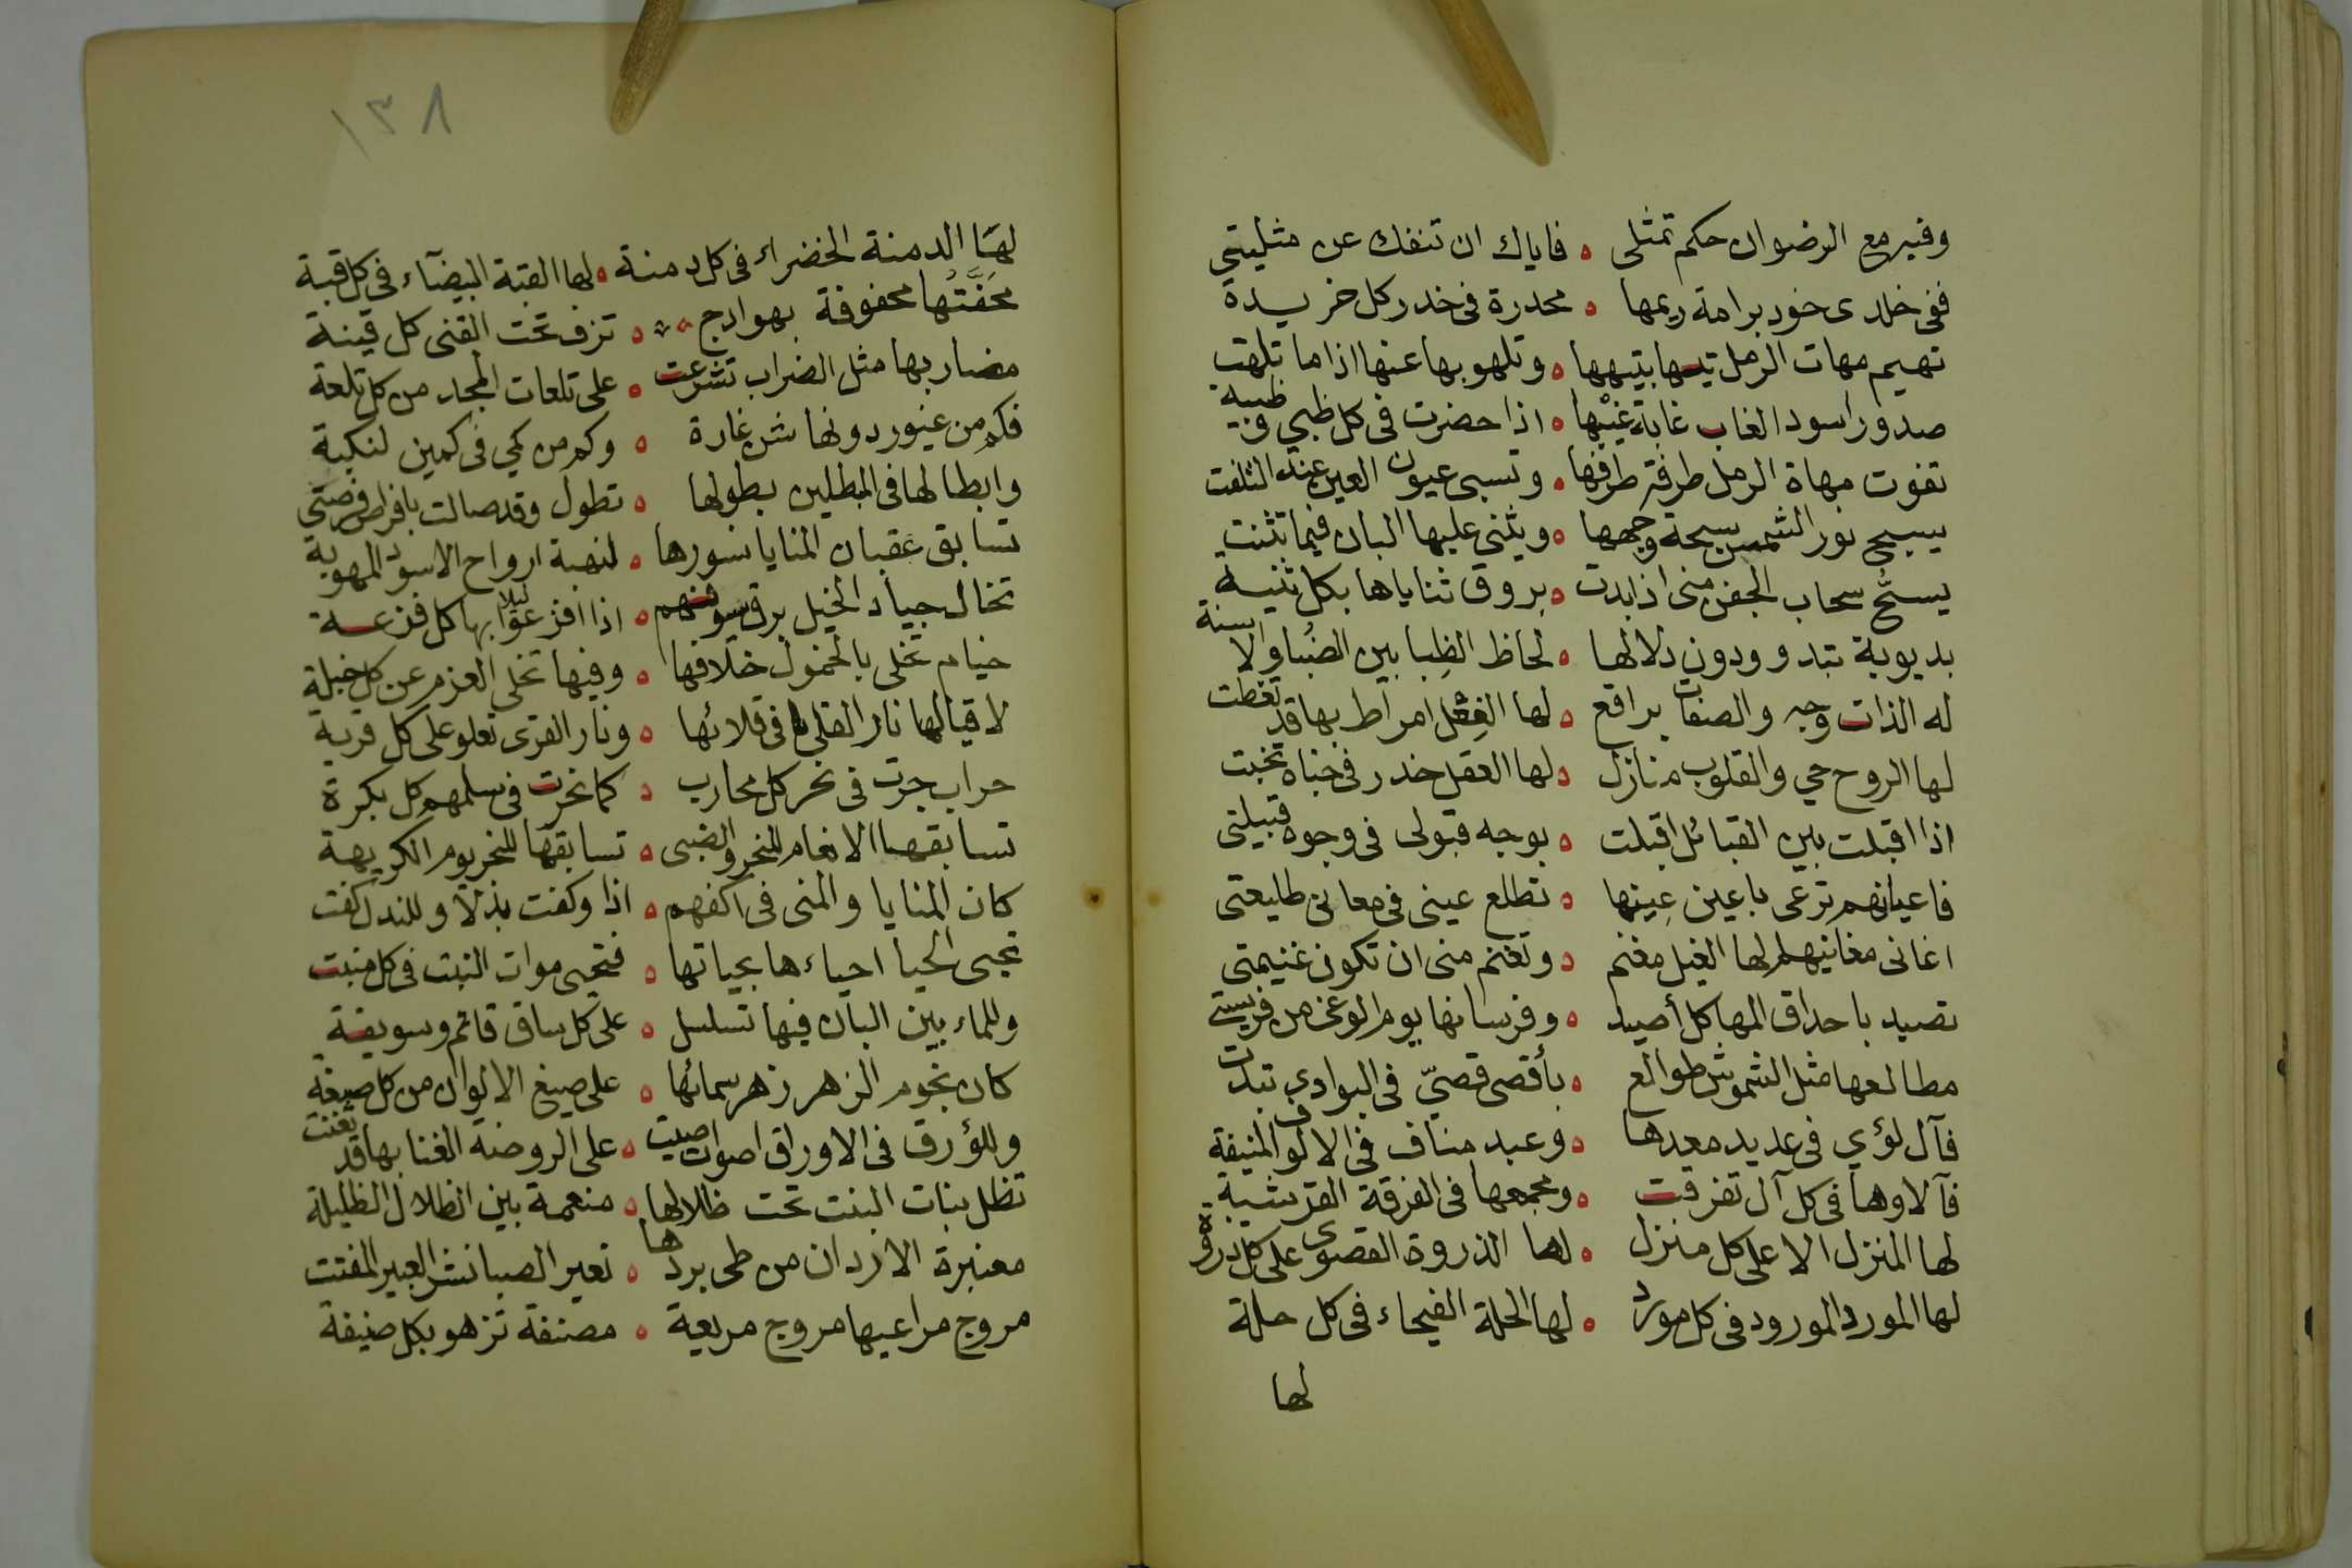 وفيه مع الرضوان حكم تمثلى ه فاياك ان تنفك عن مثليتي
ففى خلدى خود برامة ريمها ه مخدرة فى خدر كل خريدة
تهيم مهات الرمل تيها بتيهها ه وتلهو بها عنها اذا ما تلهت
صدور اسود الغاب غابة غيبها ه اذا حضرت فى كل ظبي وظبية
تفوت مهاة الرمل طرفة طرفها ه وتسبى عيون العين عند التلفت
يسبح نور الشمس سبحة وجهها ه ويثنى عليها البان فيما تثنت
يسحُّ سحاب الجفن منى اذا بدت ه بروق ثناياها بكل ثنية
بديوية تبدو ودون دلالها ه لحاظ الظِبا بين الضُبا والاسنة
له الذات وجه والصفات براقع ه لها الفعل امراط بها قد تغطت
لها الروح حي والقلوب منازل ه لها العقل خدر فى خباه تخبت
اذا اقبلت بين القبائل اقبلت ه بوجه قبولى فى وجوه قبيلتى
فاعيانهم ترعى باعين عِينها ه تطلع عينى فى معانى طليعتى
اغانى مغانيهم لها الغيل مغنم ه وتغنم منى ان تكون غنيمتى
تصيد باحداق المها كل أصيد ه وفرسانها يوم الوغى من فريستى
مطالعها مثل الشموش طوالع ه بأقصى قصيّ فى البوادي تبدت
فآل لؤي فى عديد معدها ه وعبد مناف فى الالوف المنيفة
فآلاوها فى كل آل تفرقت ه ومجمعها فى الفرقة القرشية
لها المنزل الاعلى كل منزل ه لها الذروة القصوى على كل دروة
لها المورد المورود فى كل مورد ه لها الحلة الفيحاء فى كل حلة
لها
١٣٨
لها الدمنة الخضراء فى كل دمنة ه لها القبة البيضآء فى كل قبة
مَحَفَّتُها محفوفة بهوادج ه تزف تحت القنى كل قينة
مضاربها مثل الضراب تشرعت ه على تلعات المجد من كل تلعة
فكم من غيور دونها شن غارة ه وكم من كمي فى كمين لنكبة
وابطالها فى المطلين بطولها ه تطول وقد صالت بافراط فرصتى
تسابق عقبان المنايا نسورها ه لنهبة ارواح الاسود المهوية
تخال جياد الخيل برق سيوفهم ه اذا افزعوا ليلا بها كل فزعة
خيام تخلى بالخمول خلافها ه وفيها تخلى العزم عن كل خيلة
لاقيالها نار القلى فى قلائها ه ونار القرى تعلو على كل قرية
حراب جرت فى نحر كل محارب ه كما نحرت فى سلمهم كل بكرة
تسابقها الانعام للنحر والضبى ه تسابقها للنحر يوم الكريهة
كان المنايا والمنى فى اكفهم ه اذا وكفت بذلا وللندل كفت
تجبى الحيا احياءها بحياتها ه فتحيى موات النبت فى كل منبت
وللماء بين البان فيها تسلسل ه على كل ساق قائم وسويقة
كان نجوم الزهر زهر سمائها ه على صيغ الالوان من كل صيغة
وللؤرق فى الاوراق اصوات اصيت ه على الروضة الغنا بها قد تغنت
تظل بنات البنت تحت ظلالها ه منعمة بين الظلال الظليلة
معنبرة الاردان من طى بردها ه تعير الصبا نشر العبير المفتت
مروج مراعيها مروج مريعة ه مصنفة تزهو بكل صنيفة